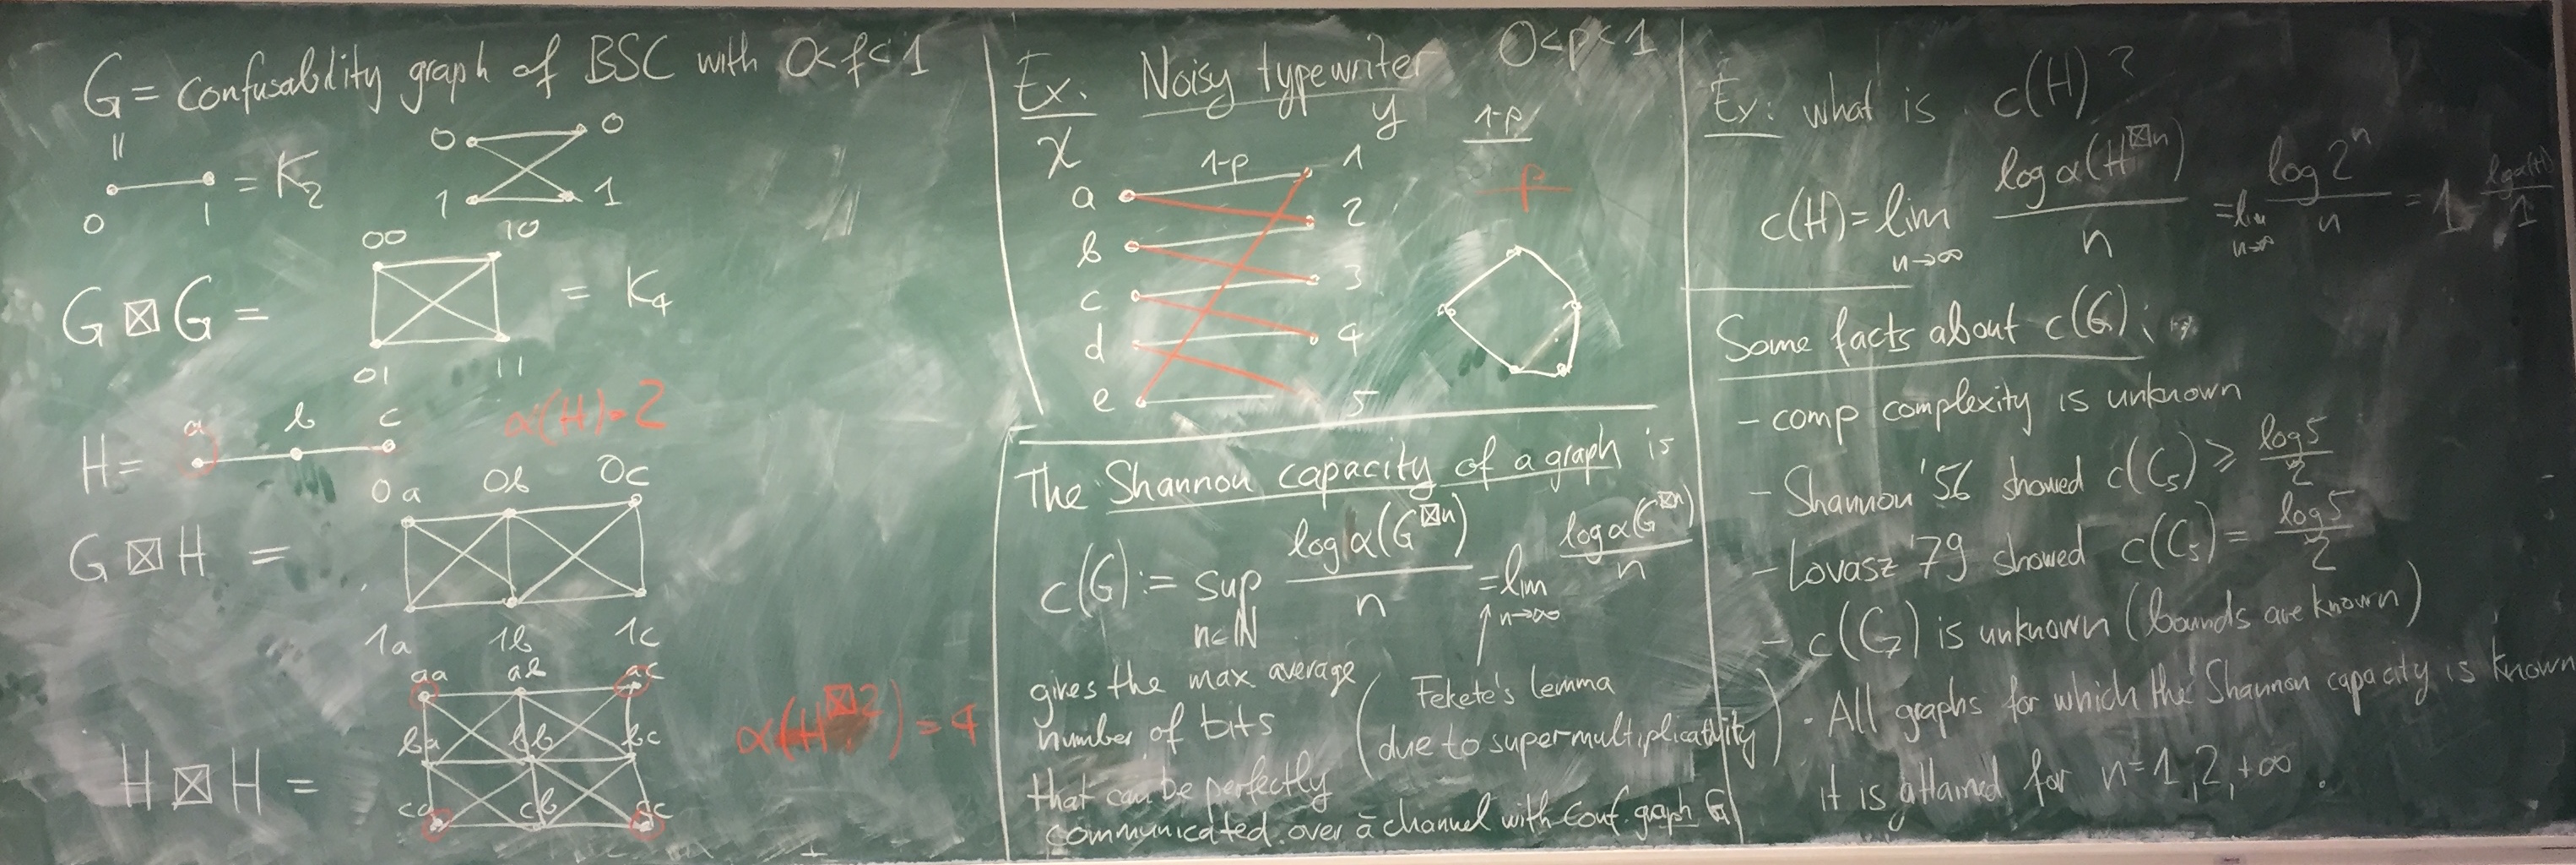 G = confusability graph of BSC with 0<f<1
||
0 1 = K₂
0 0
1 1
00 10
G ⊠ G = = K₄
01 11
α(H)=2
a b c
H=
0a 0b 0c
G ⊠ H =
1a 1b 1c
aa ab ac
ba bb bc
H ⊠ H =
ca cb cc
α(H^⊠2) = 4
Ex. Noisy typewriter 0<p<1
X y 1-p
p
1-p
a 1
b 2
c 3
d 4
e 5
The Shannon capacity of a graph is
c(G) := sup_{n∈ℕ} log α(G^⊠n) / n = lim_{n→∞} log α(G^⊠n) / n
gives the max average
number of bits
that can be perfectly
communicated over a channel with conf. graph G
(Fekete's lemma
due to supermultiplicativity)
Ex: what is c(H)?
c(H) = lim_{n→∞} log α(H^⊠n) / n = lim_{n→∞} log 2ⁿ / n = 1 log α(H) / 1
Some facts about c(G):
- comp complexity is unknown
- Shannon '56 showed c(C₅) ≥ log5 / 2
- Lovasz '79 showed c(C₅) = log5 / 2
- c(C₇) is unknown (bounds are known)
- All graphs for which the Shannon capacity is known
it is attained for n=1,2,+∞.